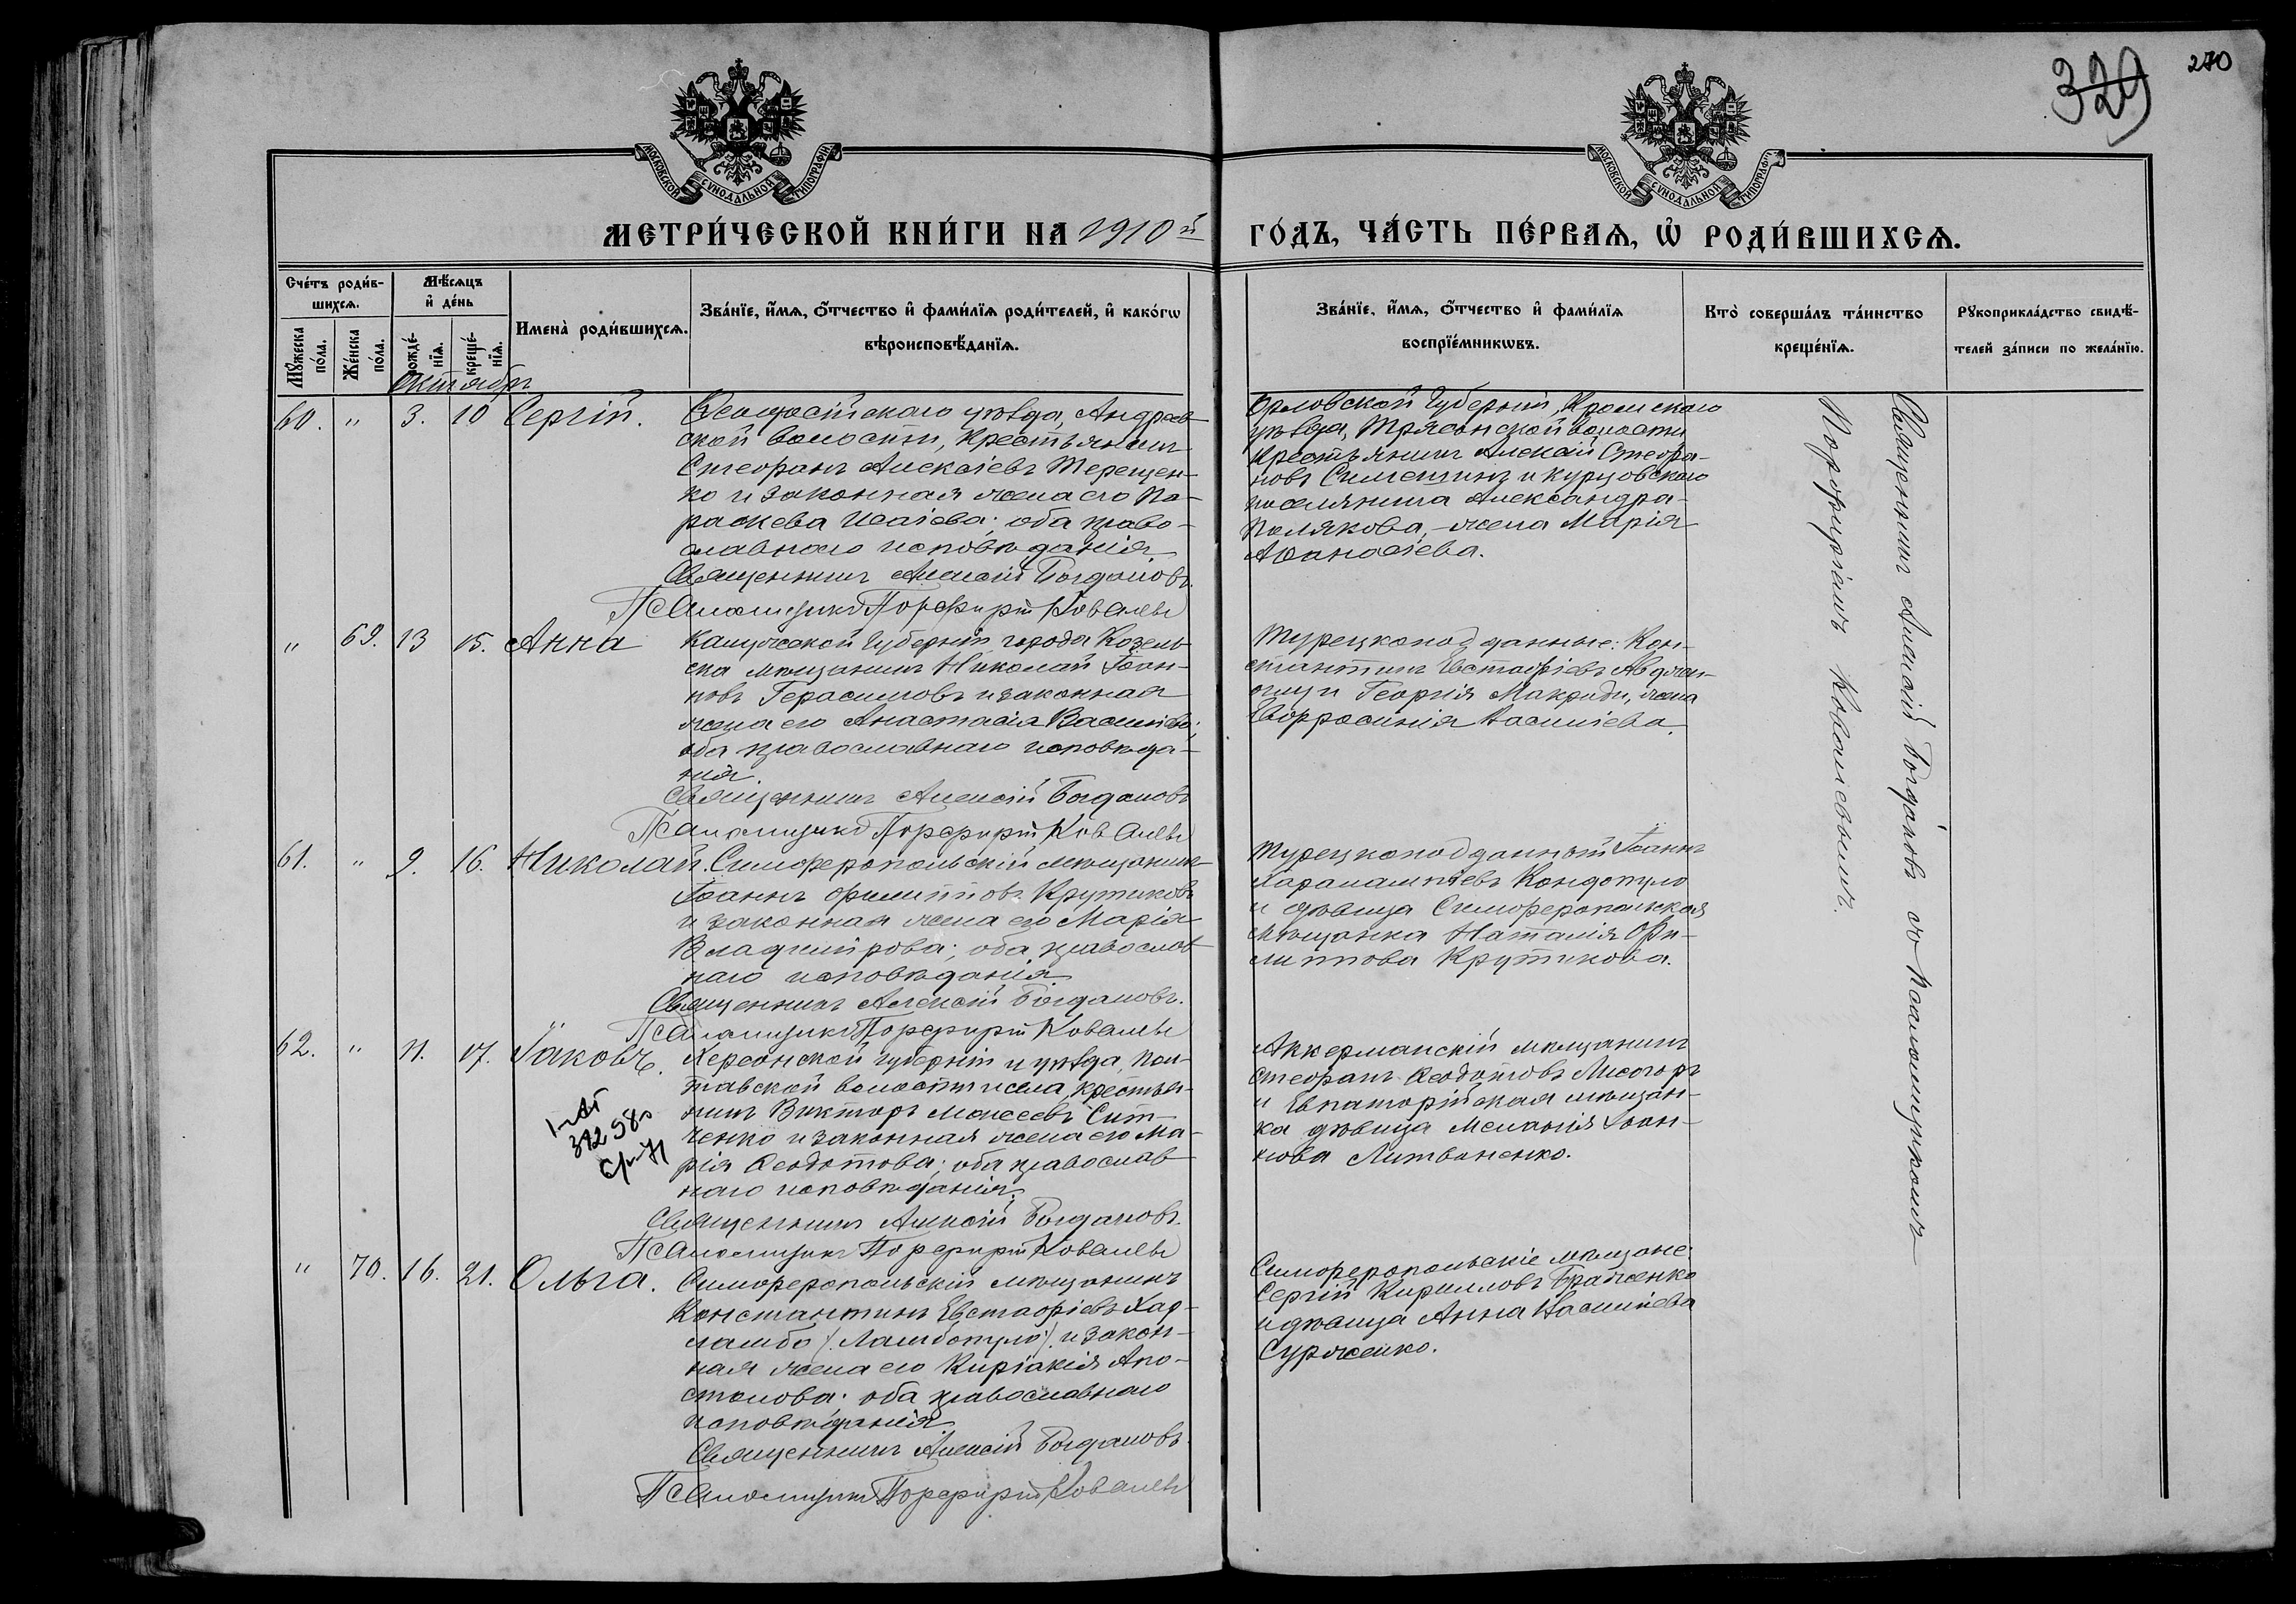 329
270
МОСКОВСКОЙ СѴНОДАЛЬНОЙ ТИПОГРАФІИ
МОСКОВСКОЙ СѴНОДАЛЬНОЙ ТИПОГРАФІИ
МЕТРИ́ЧЕСКОЙ КНИ́ГИ НА 1910й ГО́ДЪ, ЧА́СТЬ ПЕ́РВАѦ, Ѡ҆ РОДИ́ВШИХСѦ.
Сче́тъ роди́в-
шихсѧ.
Мꙋ́жеска
по́ла.
Же́нска
по́ла.
Мѣ́сѧцъ
и҆ де́нь
рожде́-
нїѧ.
креще́-
нїѧ.
Имена̀ роди́вшихсѧ.
Зва́нїе, и҆́мѧ, ѻ҆́тчество и҆ фами́лїѧ роди́телей, и҆ како́гѡ
вѣроисповѣ́данїѧ.
Зва́нїе, и҆́мѧ, ѻ҆́тчество и҆ фами́лїѧ
воспрїе́мникѡвъ.
Кто̀ соверша́лъ та́инство
креще́нїѧ.
Рꙋкоприкла́дство свидѣ́-
телей за́писи по жела́нїю.
Октябрь
60. " 3. 10 Сергій.
Ѳеодосійскаго уѣзда, Андреев-
ской волости, крестьянинъ
Стефанъ Алексіевъ Терещен-
ко и законная жена его Па-
раскева Исаіева; оба право-
славнаго исповѣданія.
Священникъ Алексій Богдановъ.
Псаломщикъ Порфирій Ковалевъ
Орловской Губерніи, Кромскаго
уѣзда, волости
крестьянинъ Алексій Стефа-
новъ и курцовскаго
поселянина Александра
Полякова, жена Марія
Аѳанасіева.
" 69. 13 15. Анна
Калужской Губерніи города Козель-
ска мѣщанинъ Николай Іоан-
новъ Герасимовъ и законная
жена его Анастасія Василіева;
оба православнаго исповѣда-
нія.
Священникъ Алексій Богдановъ
Псаломщикъ Порфирій Ковалевъ
Турецкоподданные: Кон-
стантинъ Евстафіевъ
и Георгія Макриди, жена
Евфросинія Василіева.
61. " 9. 16. Николай.
Симферопольскій мѣщанинъ
Іоаннъ Филипповъ Крутиковъ
и законная жена его Марія
Владимірова; оба православ-
наго исповѣданія.
Священникъ Алексій Богдановъ.
Псаломщикъ Порфирій Ковалевъ
Турецкоподданный Іоаннъ
Харалампіевъ Кондопуло
и дѣвица Симферопольская
мѣщанка Наталія Фи-
липпова Крутикова.
62. " 11. 17. Іаковъ.
Херсонской Губерніи и уѣзда, Пол-
тавской волости и села, крестья-
нинъ Викторъ Моисеевъ Сит-
ченко и законная жена его Ма-
рія Ѳеодотова; оба православ-
наго исповѣданія.
Священникъ Алексій Богдановъ.
Псаломщикъ Порфирій Ковалевъ
Аккерманскій мѣщанинъ
Стефанъ Ѳеодотовъ Лисогоръ
и Евпаторійская мѣщан-
ка дѣвица Меланія Іоан-
нова Литвиненко.
" 70. 16. 21. Ольга.
Симферопольскій мѣщанинъ
Константинъ Евстафіевъ Хар-
ламбо /Ламбопуло/ и закон-
ная жена его Киріакія Апо-
столова; оба православнаго
исповѣданія.
Священникъ Алексій Богдановъ.
Псаломщикъ Порфирій Ковалевъ
Симферопольскіе мѣщане:
Сергій Кирилловъ Браженко
и дѣвица Анна Василіева
Сурженко.
Священникъ Алексій Богдановъ съ псаломщикомъ
Порфиріемъ Ковалевымъ.